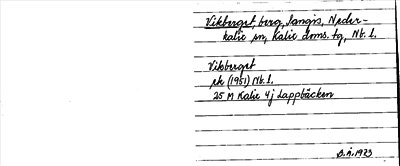 Vikberget, berg, Sangis, Neder-
kalix sn, Kalix doms. tg, Nb. l.
Vikberget
rk (1951) Nb. l.
25 M Kalix 4j Lappbäcken
1973